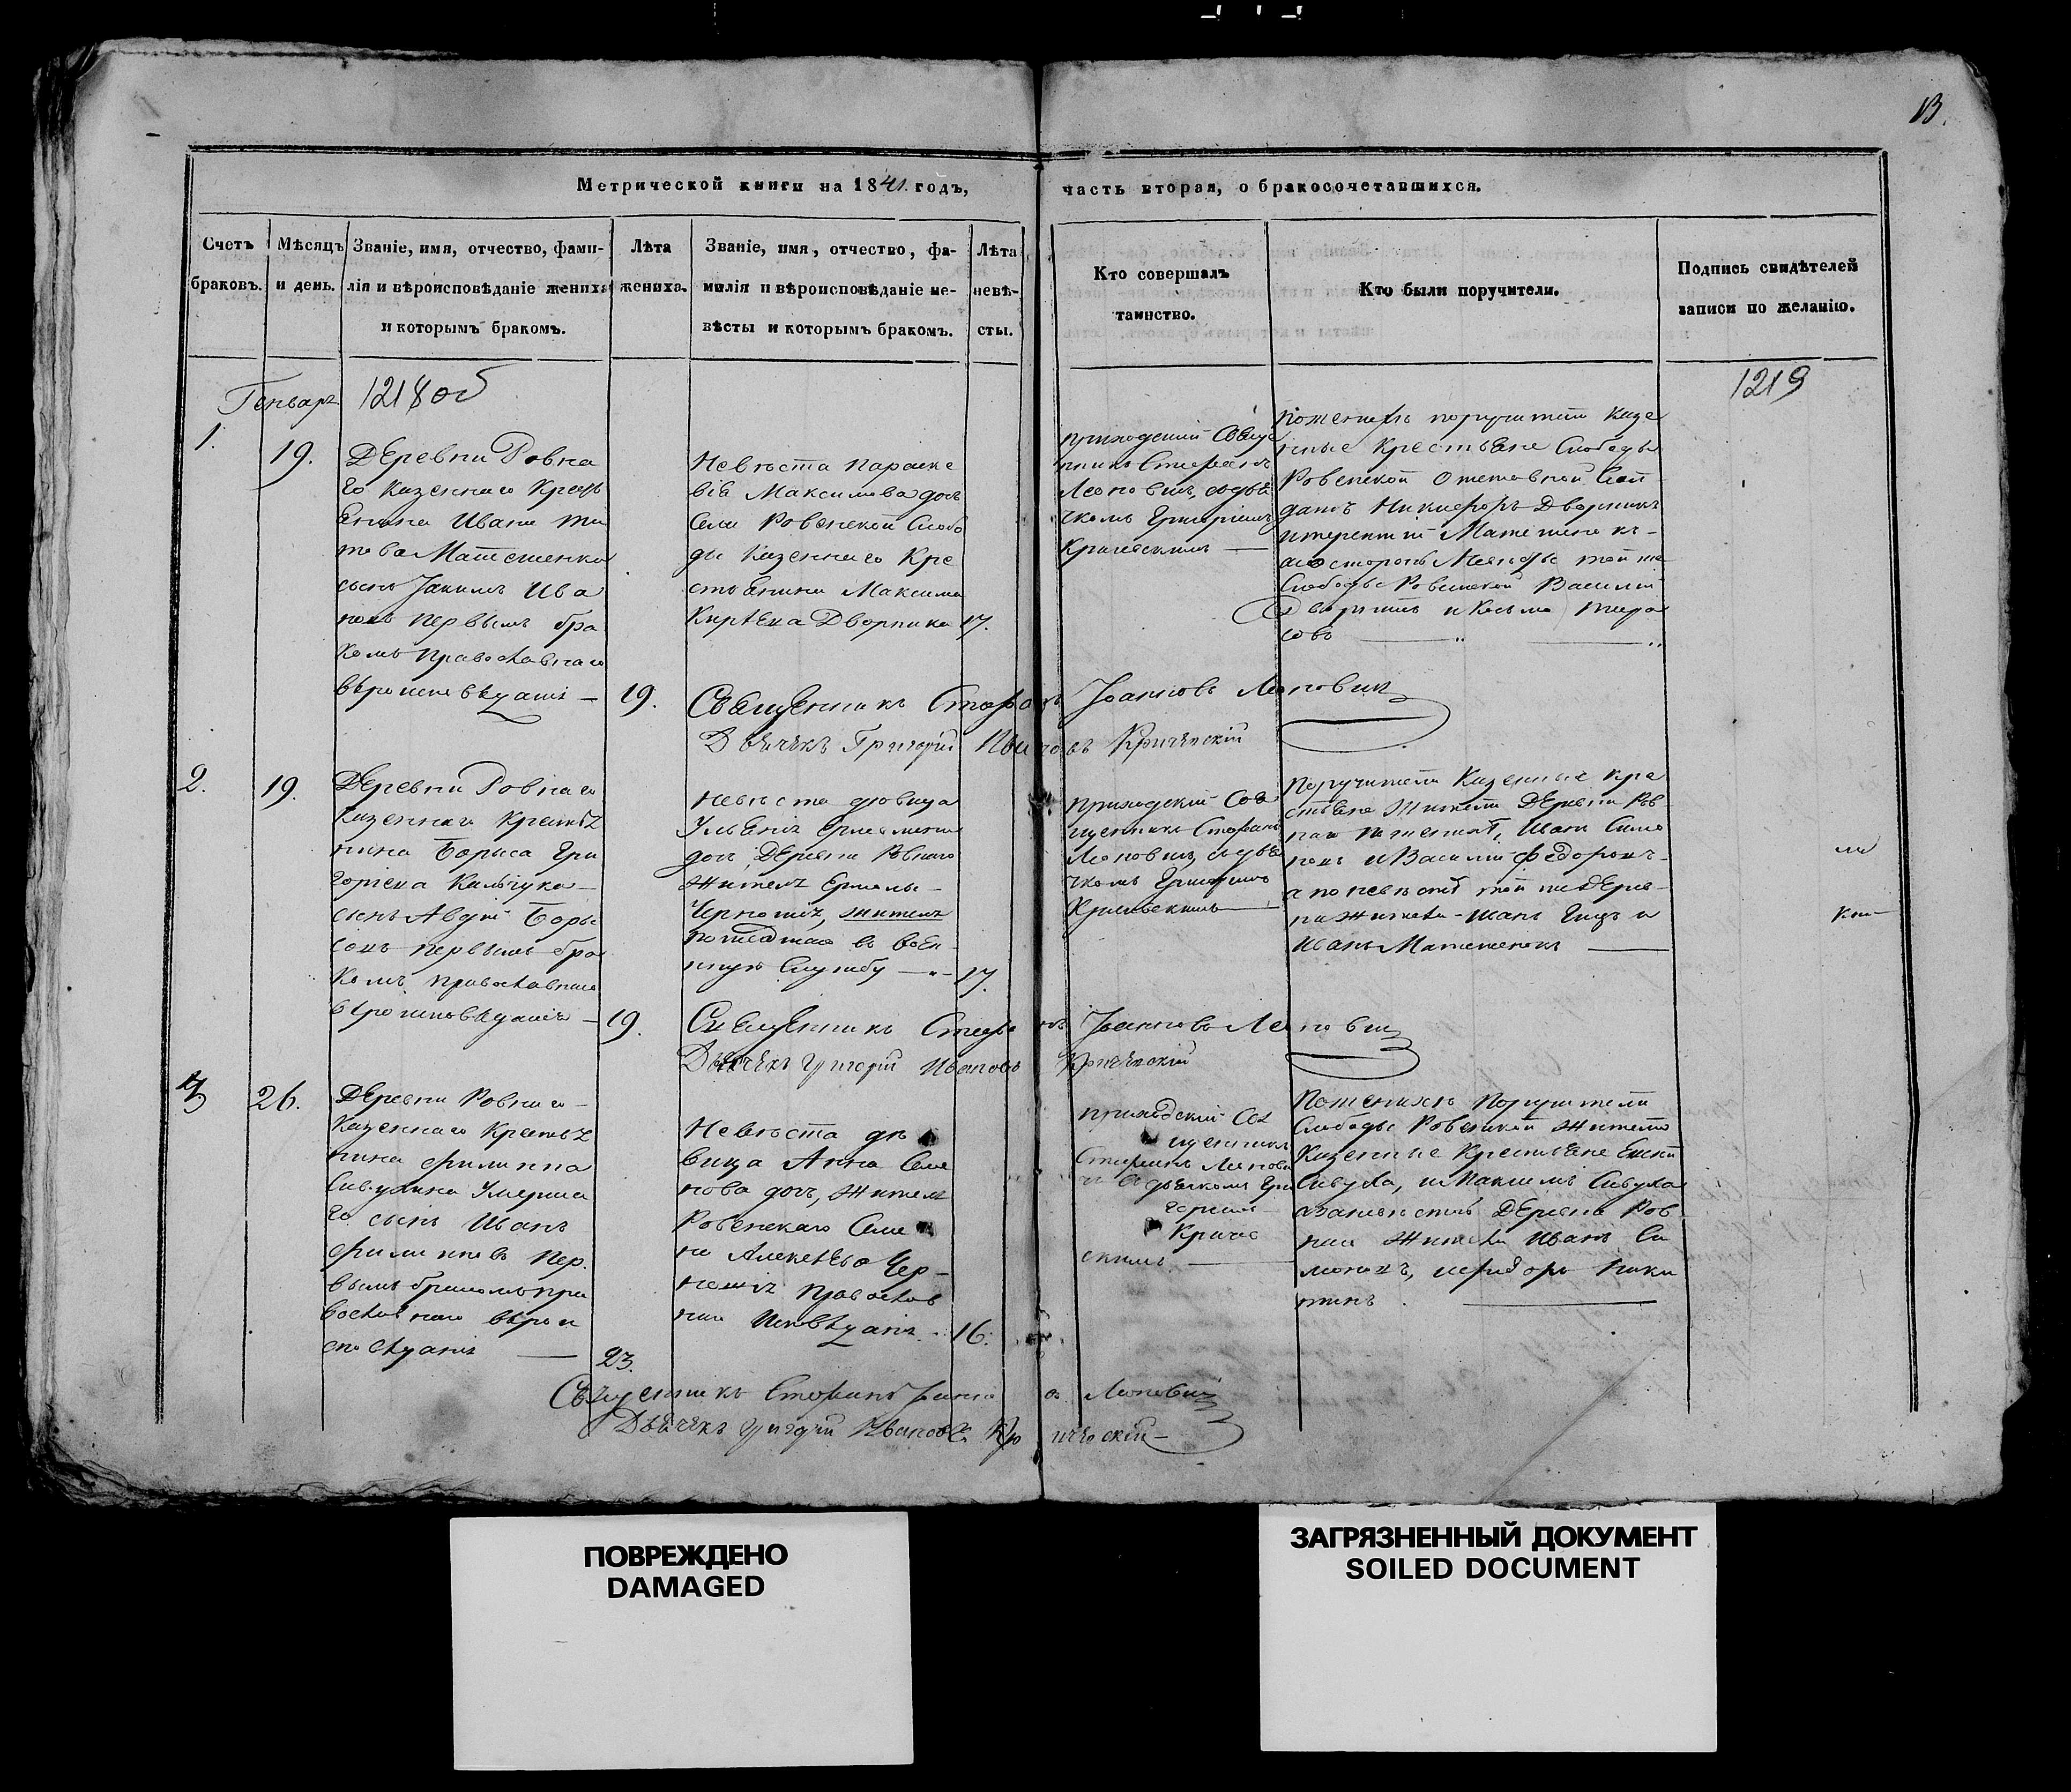 13.
Метрической книги на 1841. годъ,
часть вторая, о бракосочетавшихся.
Счетъ браковъ.
Мѣсяцъ и день.
Званіе, имя, отчество, фами-
лія и вѣроисповѣданіе жениха
и которымъ бракомъ.
Лѣта жениха.
Званіе, имя, отчество, фа-
милія и вѣроисповѣданіе не-
вѣсты и которымъ бракомъ.
Лѣта
невѣ-
сты.
Кто совершалъ
таинство.
Кто были поручители.
Подпись свидѣтелей
записи по желанію.
Генварь
1218 об
1219
1.
19.
Деревни Ровна
го Казеннаго Кресть
Енина Ивана Ти
това Матешенка
сынъ Іакимъ Ива
новъ первымъ бра
комъ православнаго
вѣроисповѣданія —
19.
Невѣста Параске
вія Максимова дочь
Села Ровенской Слобо
ды Казеннаго Кре
стьЕнина Максима
Дворника
17.
приходский Свяще
нникъ Стефанъ
Леоновичъ, съ дья
чкомъ Григоріемъ
Кричевскимъ —
Поженихѣ поручители Казе
нные КрестьЕне Слободы
Ровенской
Никифоръ Дворникъ
Слободы Ровенской Василий
Дворникъ и Косьма Тара
совъ — „ — „
СвЕщЕнникъ Стефанъ Іоанновъ Леоновичъ
Дьячекъ Григорій Ивановъ Кричевскій
2.
19.
Деревни Ровнаго
Казеннаго Крестья
нина Бориса Гри
горіева
сынъ Авдій Бори
совъ первымъ бра
комъ православнаго
вѣроисповѣданія —
19.
Невѣста дѣвица
Ульянія
дочь Деревни Ровнаго
Жителя Ермолы
Черношія, жителя
пошедшаго въ воен-
ную Службу — „ —
17.
приходскій Свя
щенникъ Стефанъ
Леоновичъ, съ дья
чкомъ Григоріемъ
Кричевскимъ —
Поручители Казенные Кре
стьЕне Жители Деревни Ров
Иванъ Симо
новъ и Василій Федоровъ-
а по невѣстѣ той же Дерев-
ни Жители - Иванъ и
Иванъ Матешенокъ —
СвЕщЕнникъ Стефанъ Іоанновъ Леоновичъ
Дьячекъ Григорій Ивановъ Кричевскій
3
26.
Деревни Ровнаго —
Казеннаго Крестья
нина Филиппа
Сивухина Умерша
го сынъ Иванъ
Филиповъ Пер.
вымъ бракомъ пра
вославнаго вѣрои
сповѣданія —
23.
Невѣста дѣ
вица Анна Семе
нова дочь, жителя
Ровенскаго Семе
на Алексѣева Чер-
ношія Православ
наго Исповѣданія
16.
приходскій Свя
щенникъ
Стефанъ Леонови
чъ съ дьячкомъ Гри
горіемъ
Кричев
скимъ —
Поженихѣ Поручители
Слободы Ровенской Жители
Казенные КрестьЕне
Сивуха, и Максимъ Сивуха
а за невѣсту Деревни Ров
наго Жители Иванъ Си
моновъ, Ники
тинъ . —
Священникъ Стефанъ Іоанновъ Леоновичъ
Дьячекъ Григорій Ивановъ Кричевскій —
ПОВРЕЖДЕНО
DAMAGED
ЗАГРЯЗНЕННЫЙ ДОКУМЕНТ
SOILED DOCUMENT